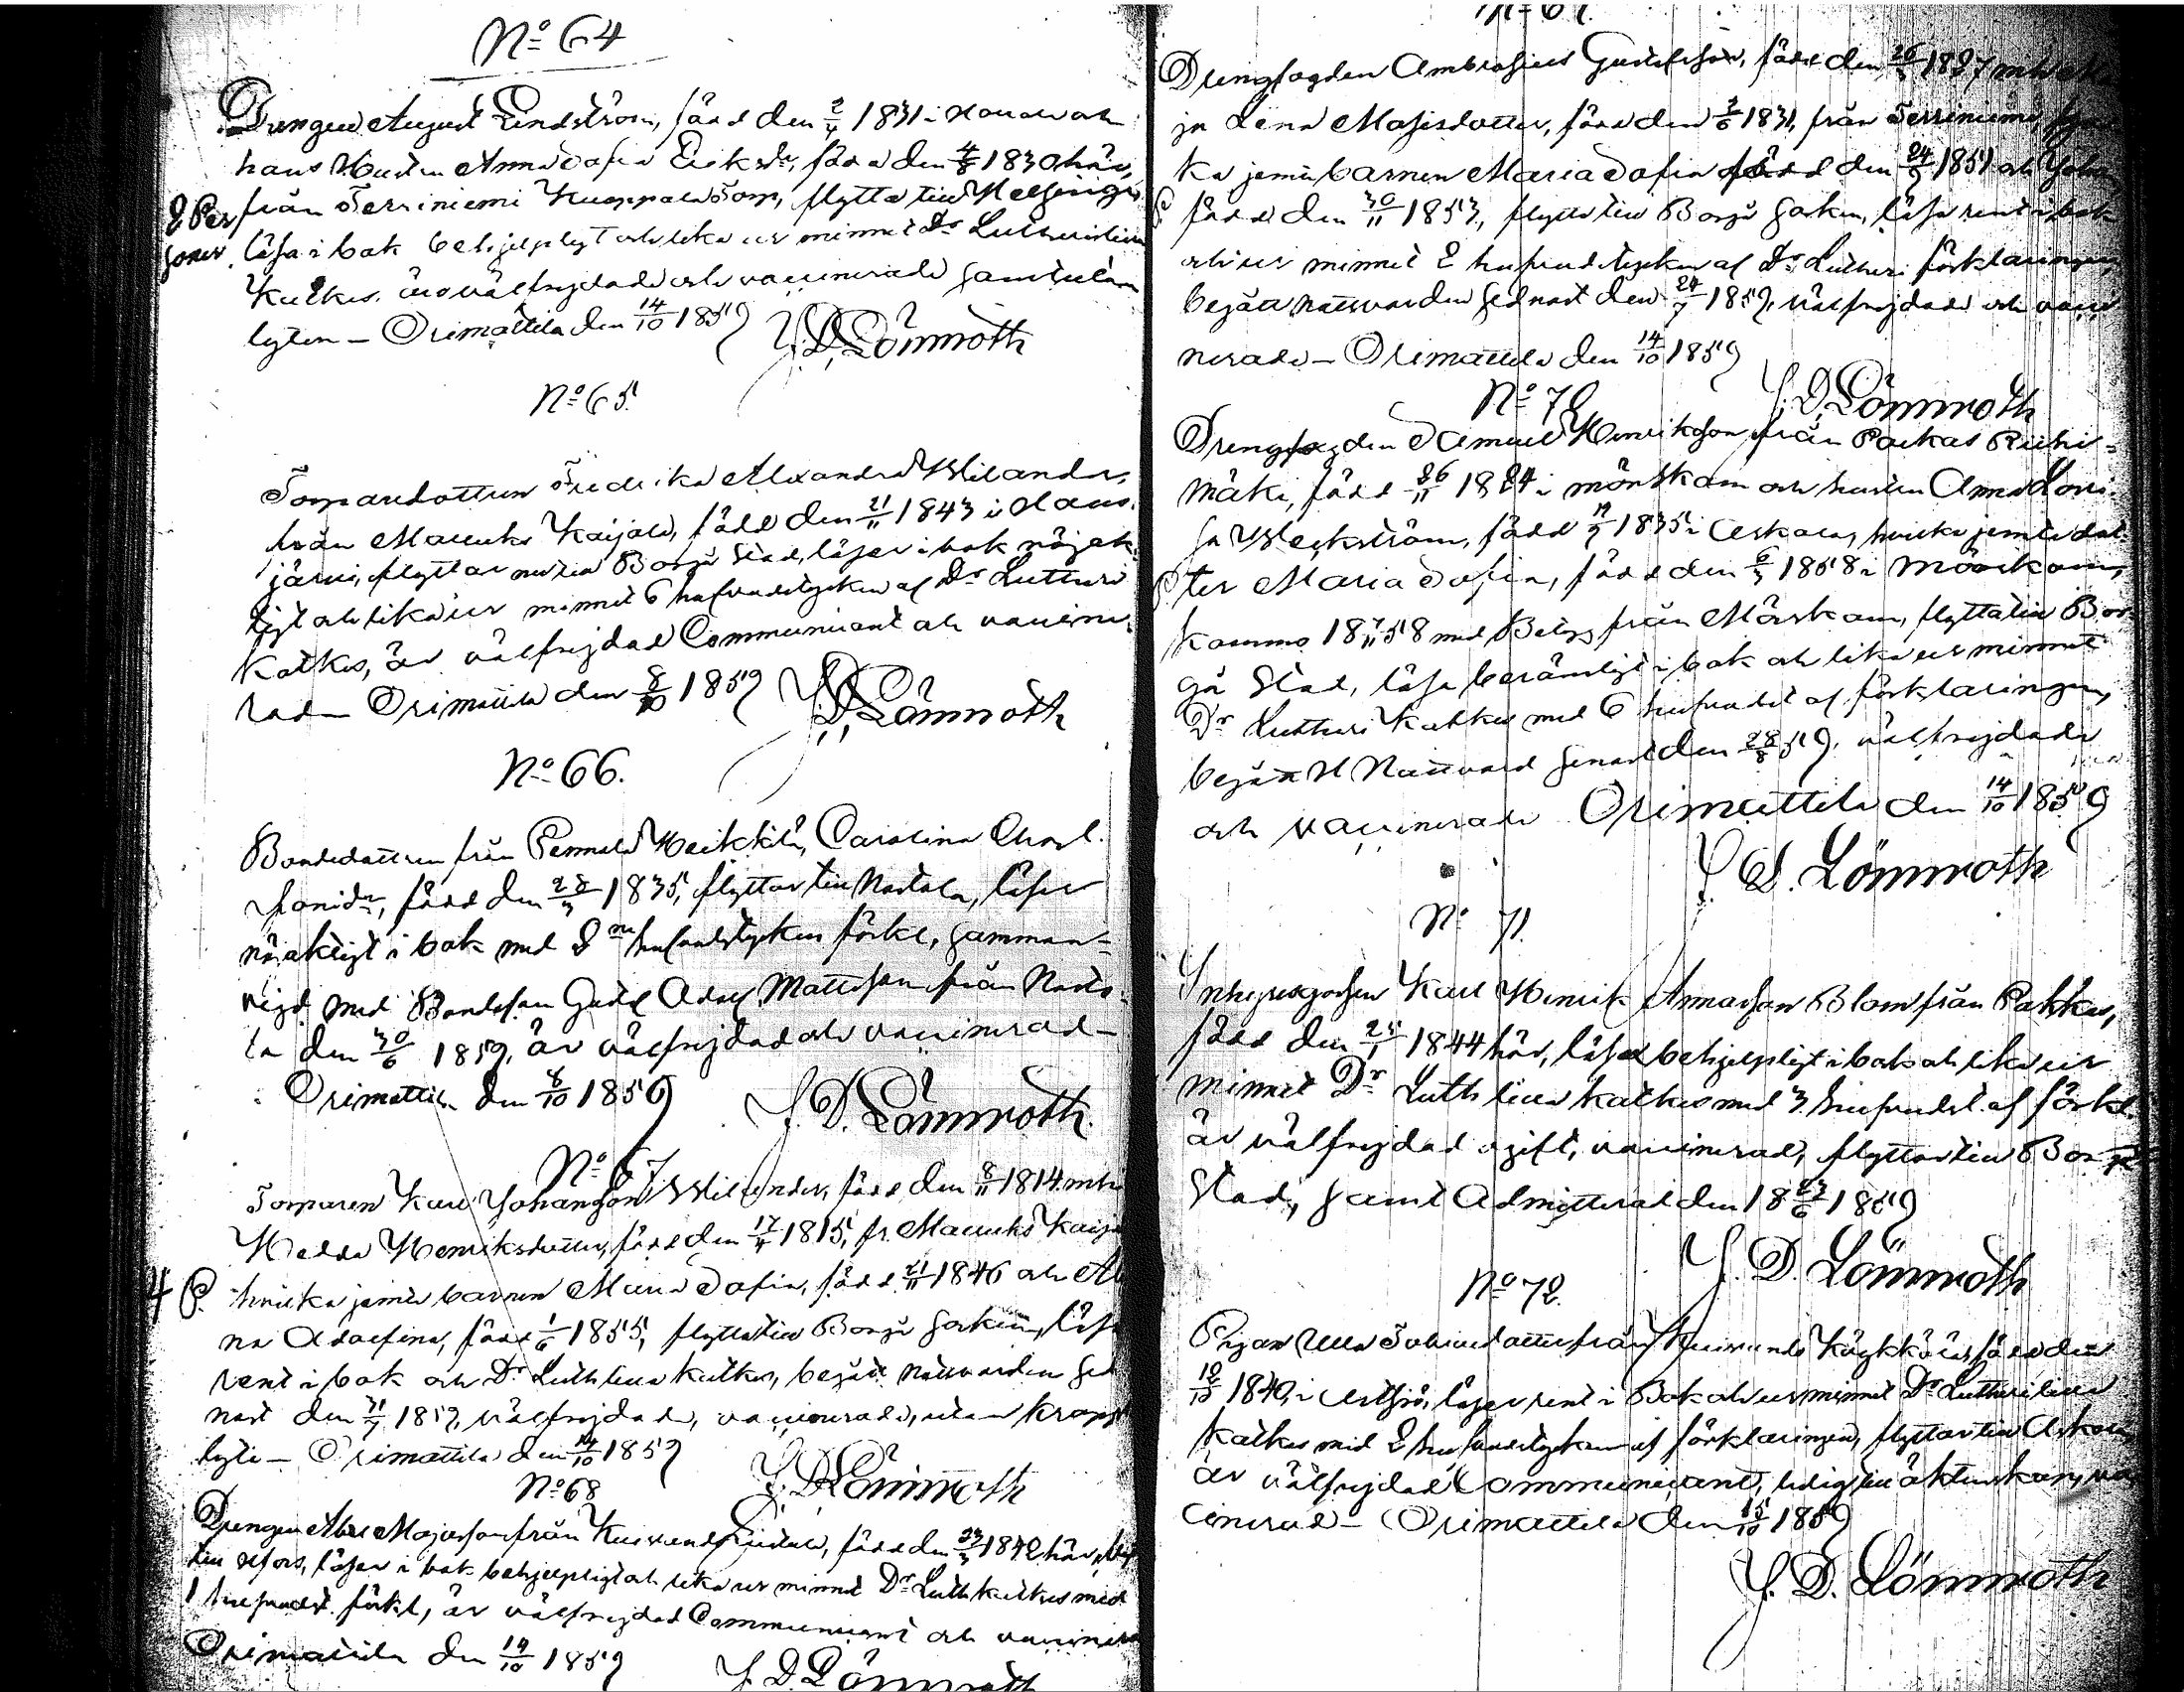 No 64
Drengen August Lindström, född den 2/4 1831 i
hans Hustru Anna Sofia Eriksdr, född den 4/8 1830 här,
2 Per från Terriniemi Torp, flytta till Helsingf
soner. läsa i bok behjelpligt och lika ur minnet Dr Lutheri lilla
Katkes. äro välfrejdade och vaccinerade samt utan
lyten – Orimattila den 14/10 1859
J. D. Lönnroth
No 65.
Torparedottren Fredrika Alexandra Wilander,
från Mallusks Kaijala, född den 21/11 1843 i Haus
järvi, flyttar nu till Borgå Stad, läser i bok nöjak
tigt och lika ur minnet 6 hufvudstycken af Dr Lutheri
Katkes, är välfrejdad Communicant och vaccine
rad – Orimattila den 8/10 1859
J. D. Lönnroth
No 66.
Bondedottren från Pennala Heikkilä, Carolina Charl.
, född den 1835, flyttar till Nastola, läser
nöjaktigt i bok med 2ne hufvudstyckens förkl, samman-
vigd med Bondeson Gustaf Adolf Mattsson från Nasto-
la den 30/6 1859, är välfrejdad och vaccinerad –
Orimattila den 8/10 1859
J. D. Lönnroth.
No 67
Torparen Karl Johansson Wilander, född den 8/11 1814 m hu
Hedda Henriksdotter, född den 17/4 1815, fr. Mallusks Kaija
4 P. hvilka jemte barnen Maria Sofia, född 21/11 1846 och Al
na Adolfina, född 1/6 1855, flytta till Borgå Socken, läsa
rent i bok och Dr Luth lilla katkes, begått nattvarden sed
nast den 31/7 1859, välfrejdade, vaccinerade, utan kropps
lyte – Orimattila den 14/10 1859
J. D. Lönnroth
No 68
Drengen Abel Majasson från Kuivanto, född den 23/3 1842 här, flytt
till Hfors, läser i bok behjelpligt och lika ur minnet Dr Luth katkes med
1 hufvudst. förkl, är välfrejdad Communicant och vaccinera
Orimattila den 14/10 1859
J. D. Lönnroth
Drengfogden Ambrosius Gustafsson, född den 26/ 1827 m hustru
ja Lena Majasdotter, född den 1831, från Terriniemi,
ka jemte barnen Maria Sofia född den 24/ 1851 och Johan
P född den 30/11 1853, flytta till Borgå Socken, läsa rent i bok
och ur minnet 2 hufvudstycken af Dr Lutheri förklaringen,
begått nattvarden sednast den 24/7 1859, välfrejdade och vacci
nerade – Orimattila den 14/10 1859
J. D. Lönnroth
No 70
Drengfogden Samuel Henriksson från Pakas Riihi-
mäki, född 26/11 1824 i Mörskom och hustru Anna Lovi
sa Weckström, född 1835 i Askola, hvilka jemte dot
P ter Maria Sofia, född den 1858 i Mörskom,
komna 18 7/11 58 med Betyg från Mörskom, flytta till Bor
gå Stad, läsa berömligt i bok och lika ur minnet
Dr Lutheri Katkes med 6 hufvudst af förklaringen,
begått H Nattvard senast den 28/8 59, välfrejdade
och vaccinerade Orimattila den 14/10 1859
J. D. Lönnroth
No 71.
Inhysesgossen Karl Henrik Annasson Blom från Pakkas,
född den 25/1 1844 här, läser behjelpligt i bok och lika ur
minnet Dr Luth lilla katkes med 3 hufvudst. af förkl.
är välfrejdad ogift, vaccinerad, flyttar till Borgå
Stad, samt Admitterad den 18 23/6 1859
J. D. Lönnroth
No 72.
Pigan Ulla från Kuivando Käykkälä, född den
12/10 1840, i Artsjö, läser rent i Bok och ur minnet Dr Lutheri lilla
katkes med 2 hufvudstycken af förklaringen, flyttar till Askola
är välfrejdad Communicant, ledig till äktenskap, vac
cinerad – Orimattila den 15/10 1859
J. D. Lönnroth